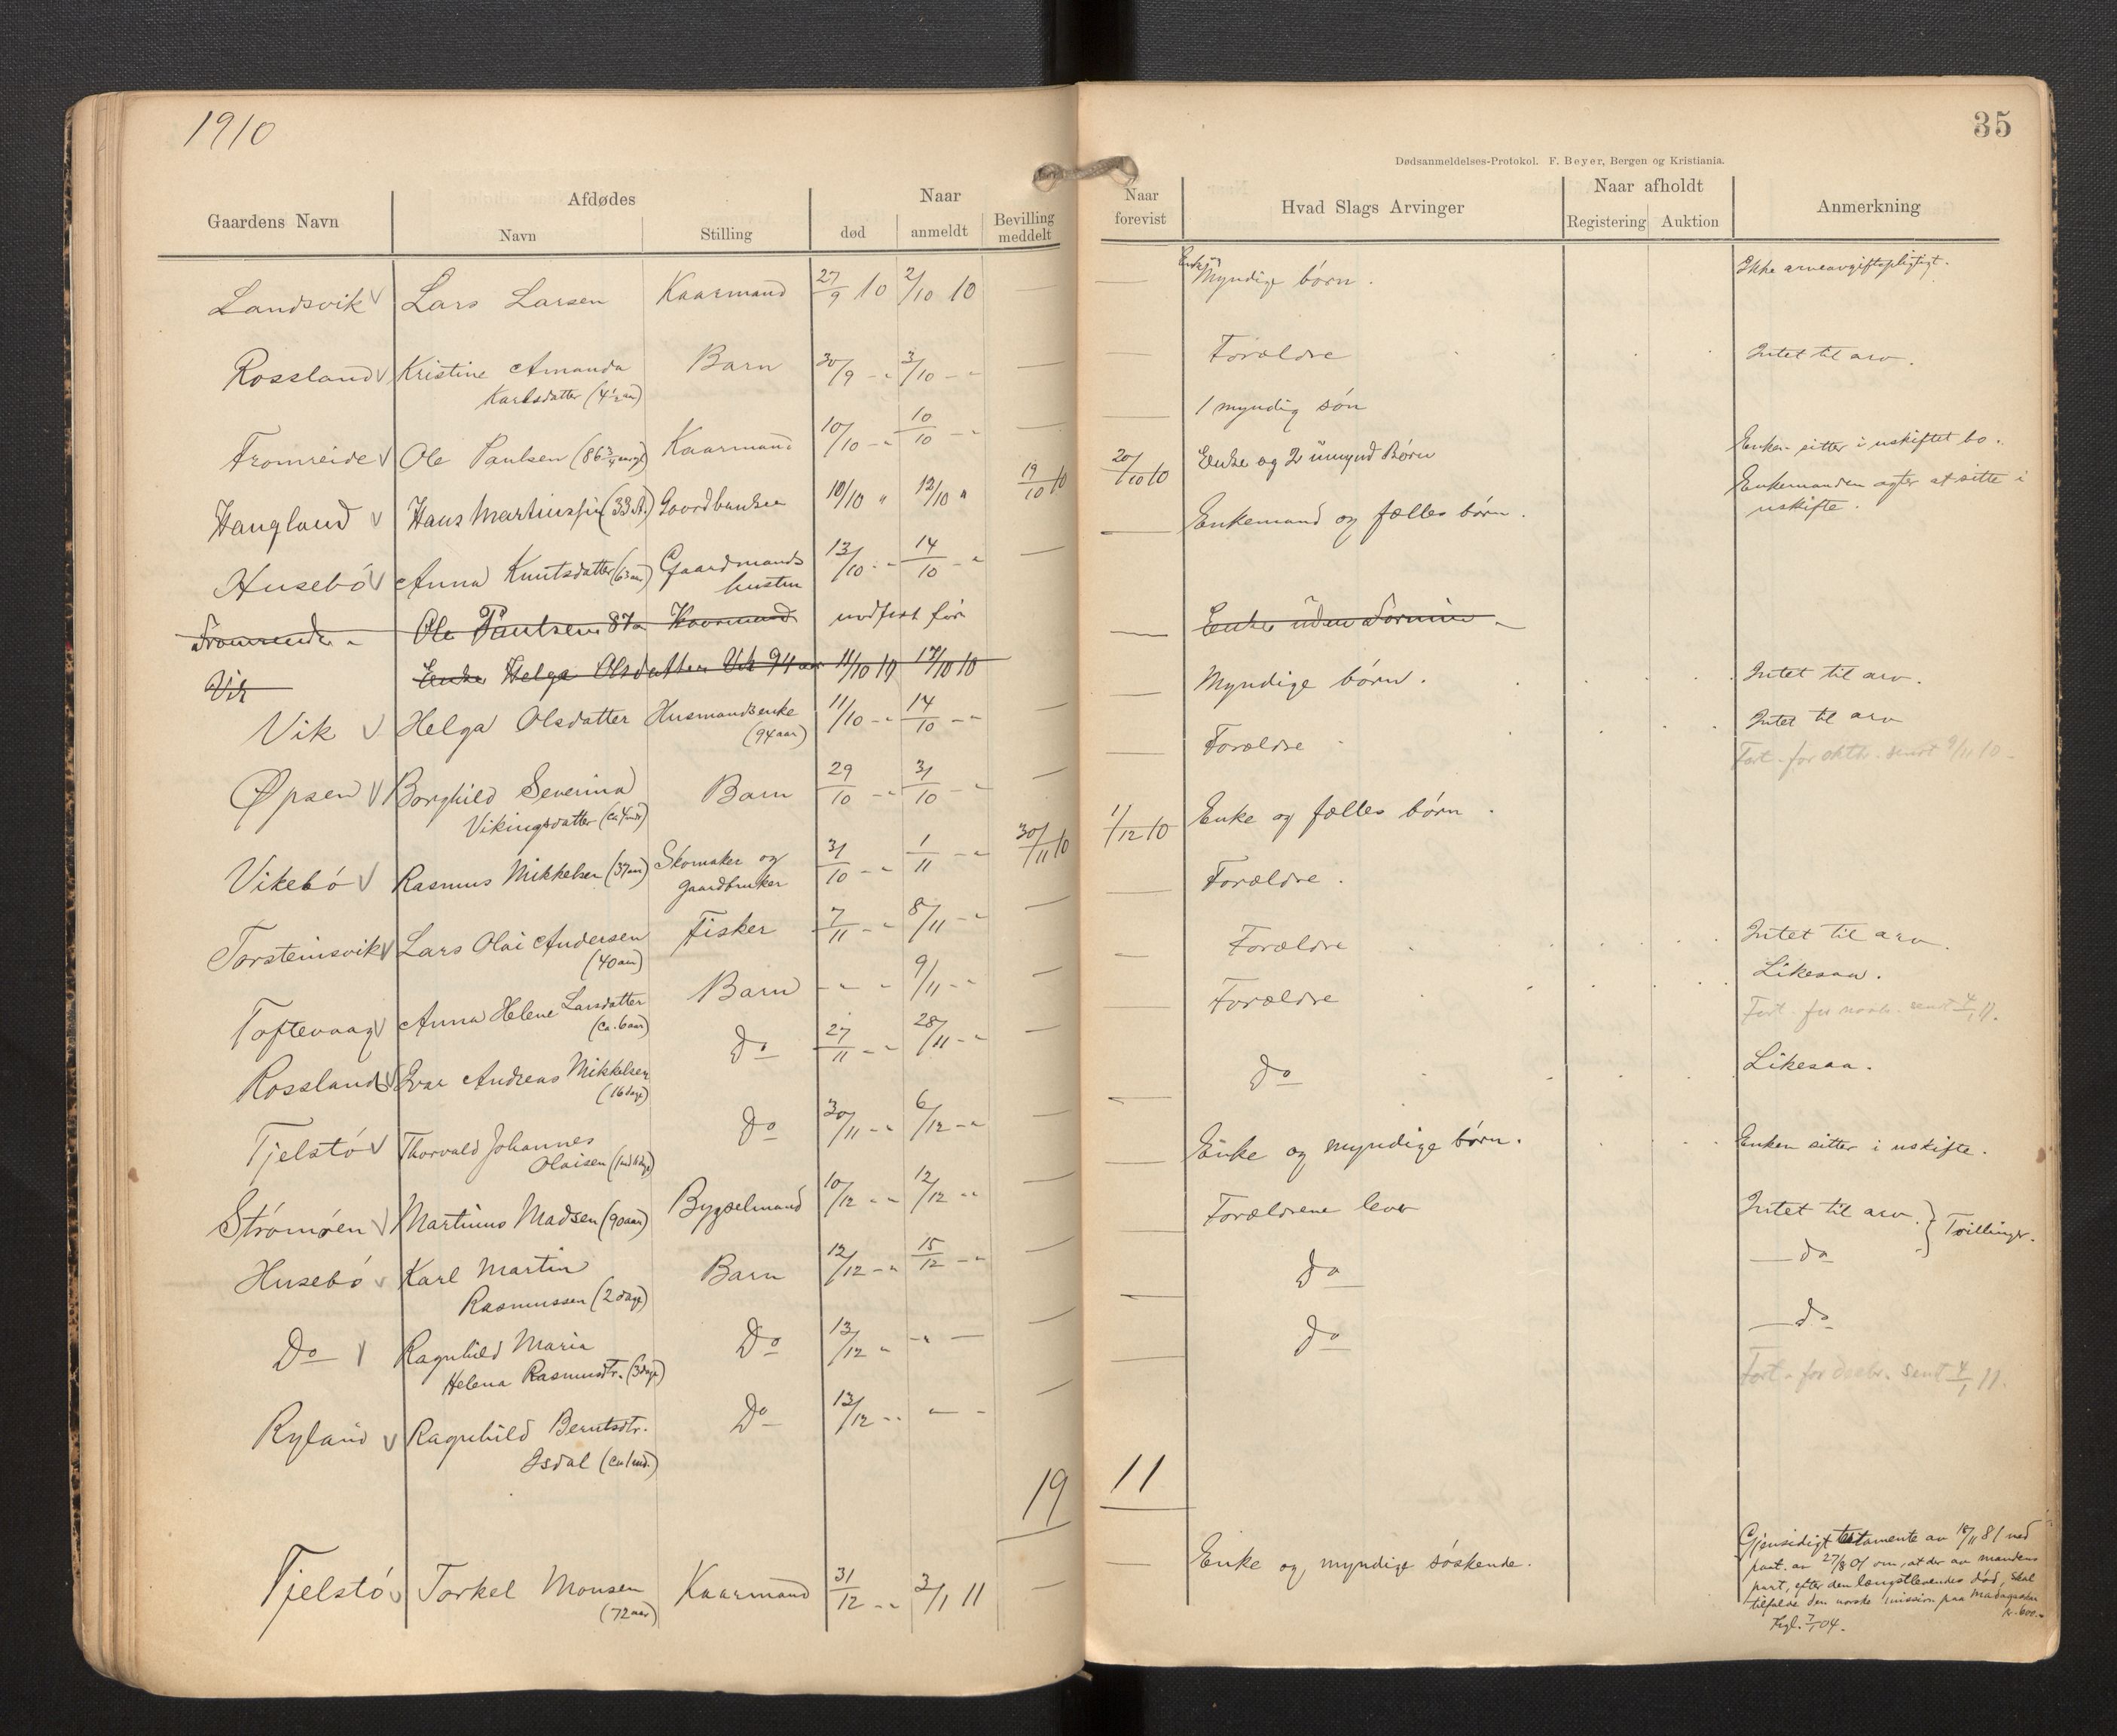 1910
35
Dødsanmeldelses-Protokol. F. Beyer, Bergen og Kristiania.
Gaardens Navn
Afdødes
Navn
Stilling
Naar
død
anmeldt
Bevilling meddelt
Naar forevist
Hvad Slags Arvinger
Naar afholdt
Registering
Auktion
Anmerkning
Landsvik Lars Larsen Kaarmand 27/9 10 2/10 10 —
Rossland Kristine Amanda Barn 30/9 - " 3/10 - " —
Karlsdatter (4½ aar)
Fromreide Ole Paulsen (86 3/4 aar) Kaarmand 10/10 - " 10/10 - " —
Haugland Hans Martinssen (33 A.) Gaardbruker 10/10 " 12/10 " 19/10 10
Husebö Anna Knutsdatter (63 aar) Gaardmands 13/10 - " 14/10 - " —
hustru
Fromreide Ole Paulsen 87 a Kaarmand indført før
Vik Enke Helga Olsdatter Vik 94 aar 11/10 10 14/10 10
Vik Helga Olsdatter Husmandsenke 11/10 - " 14/10 - " —
(94 aar)
Øpsen Borghild Severina Barn 29/10 - " 31/10 - " —
Vikingsdatter (ca 4 md)
Vikebö Rasmus Mikkelsen (37 aar) Skomaker og 31/10 - " 1/11 - " 30/11 10
gaardbruker
Torsteinsvik Lars Olai Andersen Fisker 7/11 - " 8/11 - " —
(40 aar)
Toftevaag Anna Helene Larsdatter Barn - " " 9/11 - " —
(ca. 6 aar)
Rossland Ivar Andreas Mikkelsen Do 27/11 - " 28/11 - " —
(16 dage)
Tjelstö Thorvald Johannes Do 30/11 - " 6/12 - " —
Olaisen
Strömöen Martinus Madsen (90 aar) Bygselmand 10/12 " " 12/12 " " —
Husebö Karl Martin Barn 12/12 - " 15/12 - " —
Rasmussen (2 dage)
Do Ragnhild Maria Do 13/12 " - " — —
Helena Rasmusdtr. (3 dage)
Ryland Ragnhild Berntsdtr. Do 13/12 - " — - —
Isdal (ca 1 md.)
19
Tjelstö Torkel Monsen Kaarmand 31/12 - " 3/1 11 —
(72 aar)
Enke og
— Myndige börn. Ikke arveavgiftspligtigt.
— Forældre Intet til arv.
— 1 myndig sön
20/10 10 Enke og 2 umynd Börn Enken sitter i uskiftet bo.
— Enkemand og fælles börn. Enkemanden agter at sitte i
uskifte.
— Enke uden Formue
— Myndige börn. Intet til arv.
— Forældre Intet til arv
Fort. for oktbr. sendt 9/11 10
1/12 10 Enke og fælles börn.
— Forældre.
— Forældre Intet til arv.
— Forældre Likesaa.
Fort. for novbr. sendt 4/1 11.
— Do Likesaa.
— Enke og myndige börn. Enken sitter i uskifte.
— Forældrene lever Intet til arv. } Tvillinger.
— Do — do
— Do — do
Fort. for decbr. sent 4/1 11.
11
— Enke og myndige söskende.
Gjensidigt testamente av 18/11 81 med
paat. av 27/8 01 om, at der av mandens
part, efter den længstlevendes död, skal
tilfalde den norske mission paa Madagaskar
kr. 600.-
Tgl. 7/1 04.